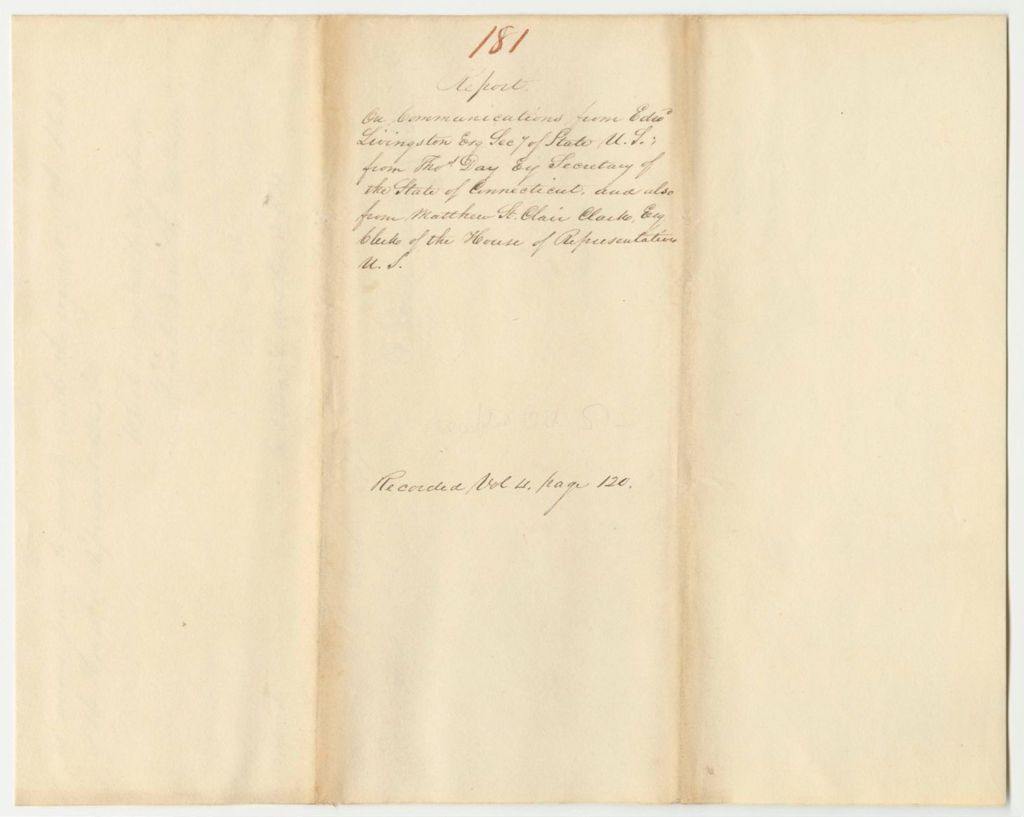 181
Report.
On Communications from Edwd
Livingston Esq Secy of State U. S.;
from Thos Day Esq Secretary of
the State of Connecticut, and also
from Matthew St. Clair Clarke, Esq
Clerk of the House of Representatives
U. S.
Recorded Vol 4. page 120.